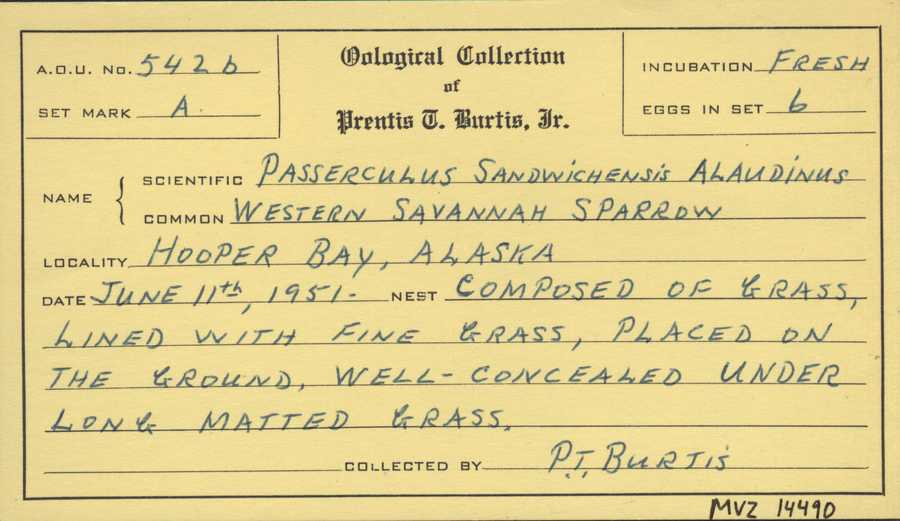 A.O.U. No. 542 b
SET MARK A.
Oological Collection
of
Prentis T. Burtis, Jr.
INCUBATION FRESH
EGGS IN SET 6
NAME
SCIENTIFIC PASSERCULUS SANDWICHENSIS ALAUDINUS
COMMON WESTERN SAVANNAH SPARROW
LOCALITY HOOPER BAY, ALASKA
DATE JUNE 11th, 1951. NEST COMPOSED OF GRASS,
LINED WITH FINE GRASS, PLACED ON
THE GROUND, WELL-CONCEALED UNDER
LONG MATTED GRASS.
COLLECTED BY P.T. BURTIS
MVZ 14490